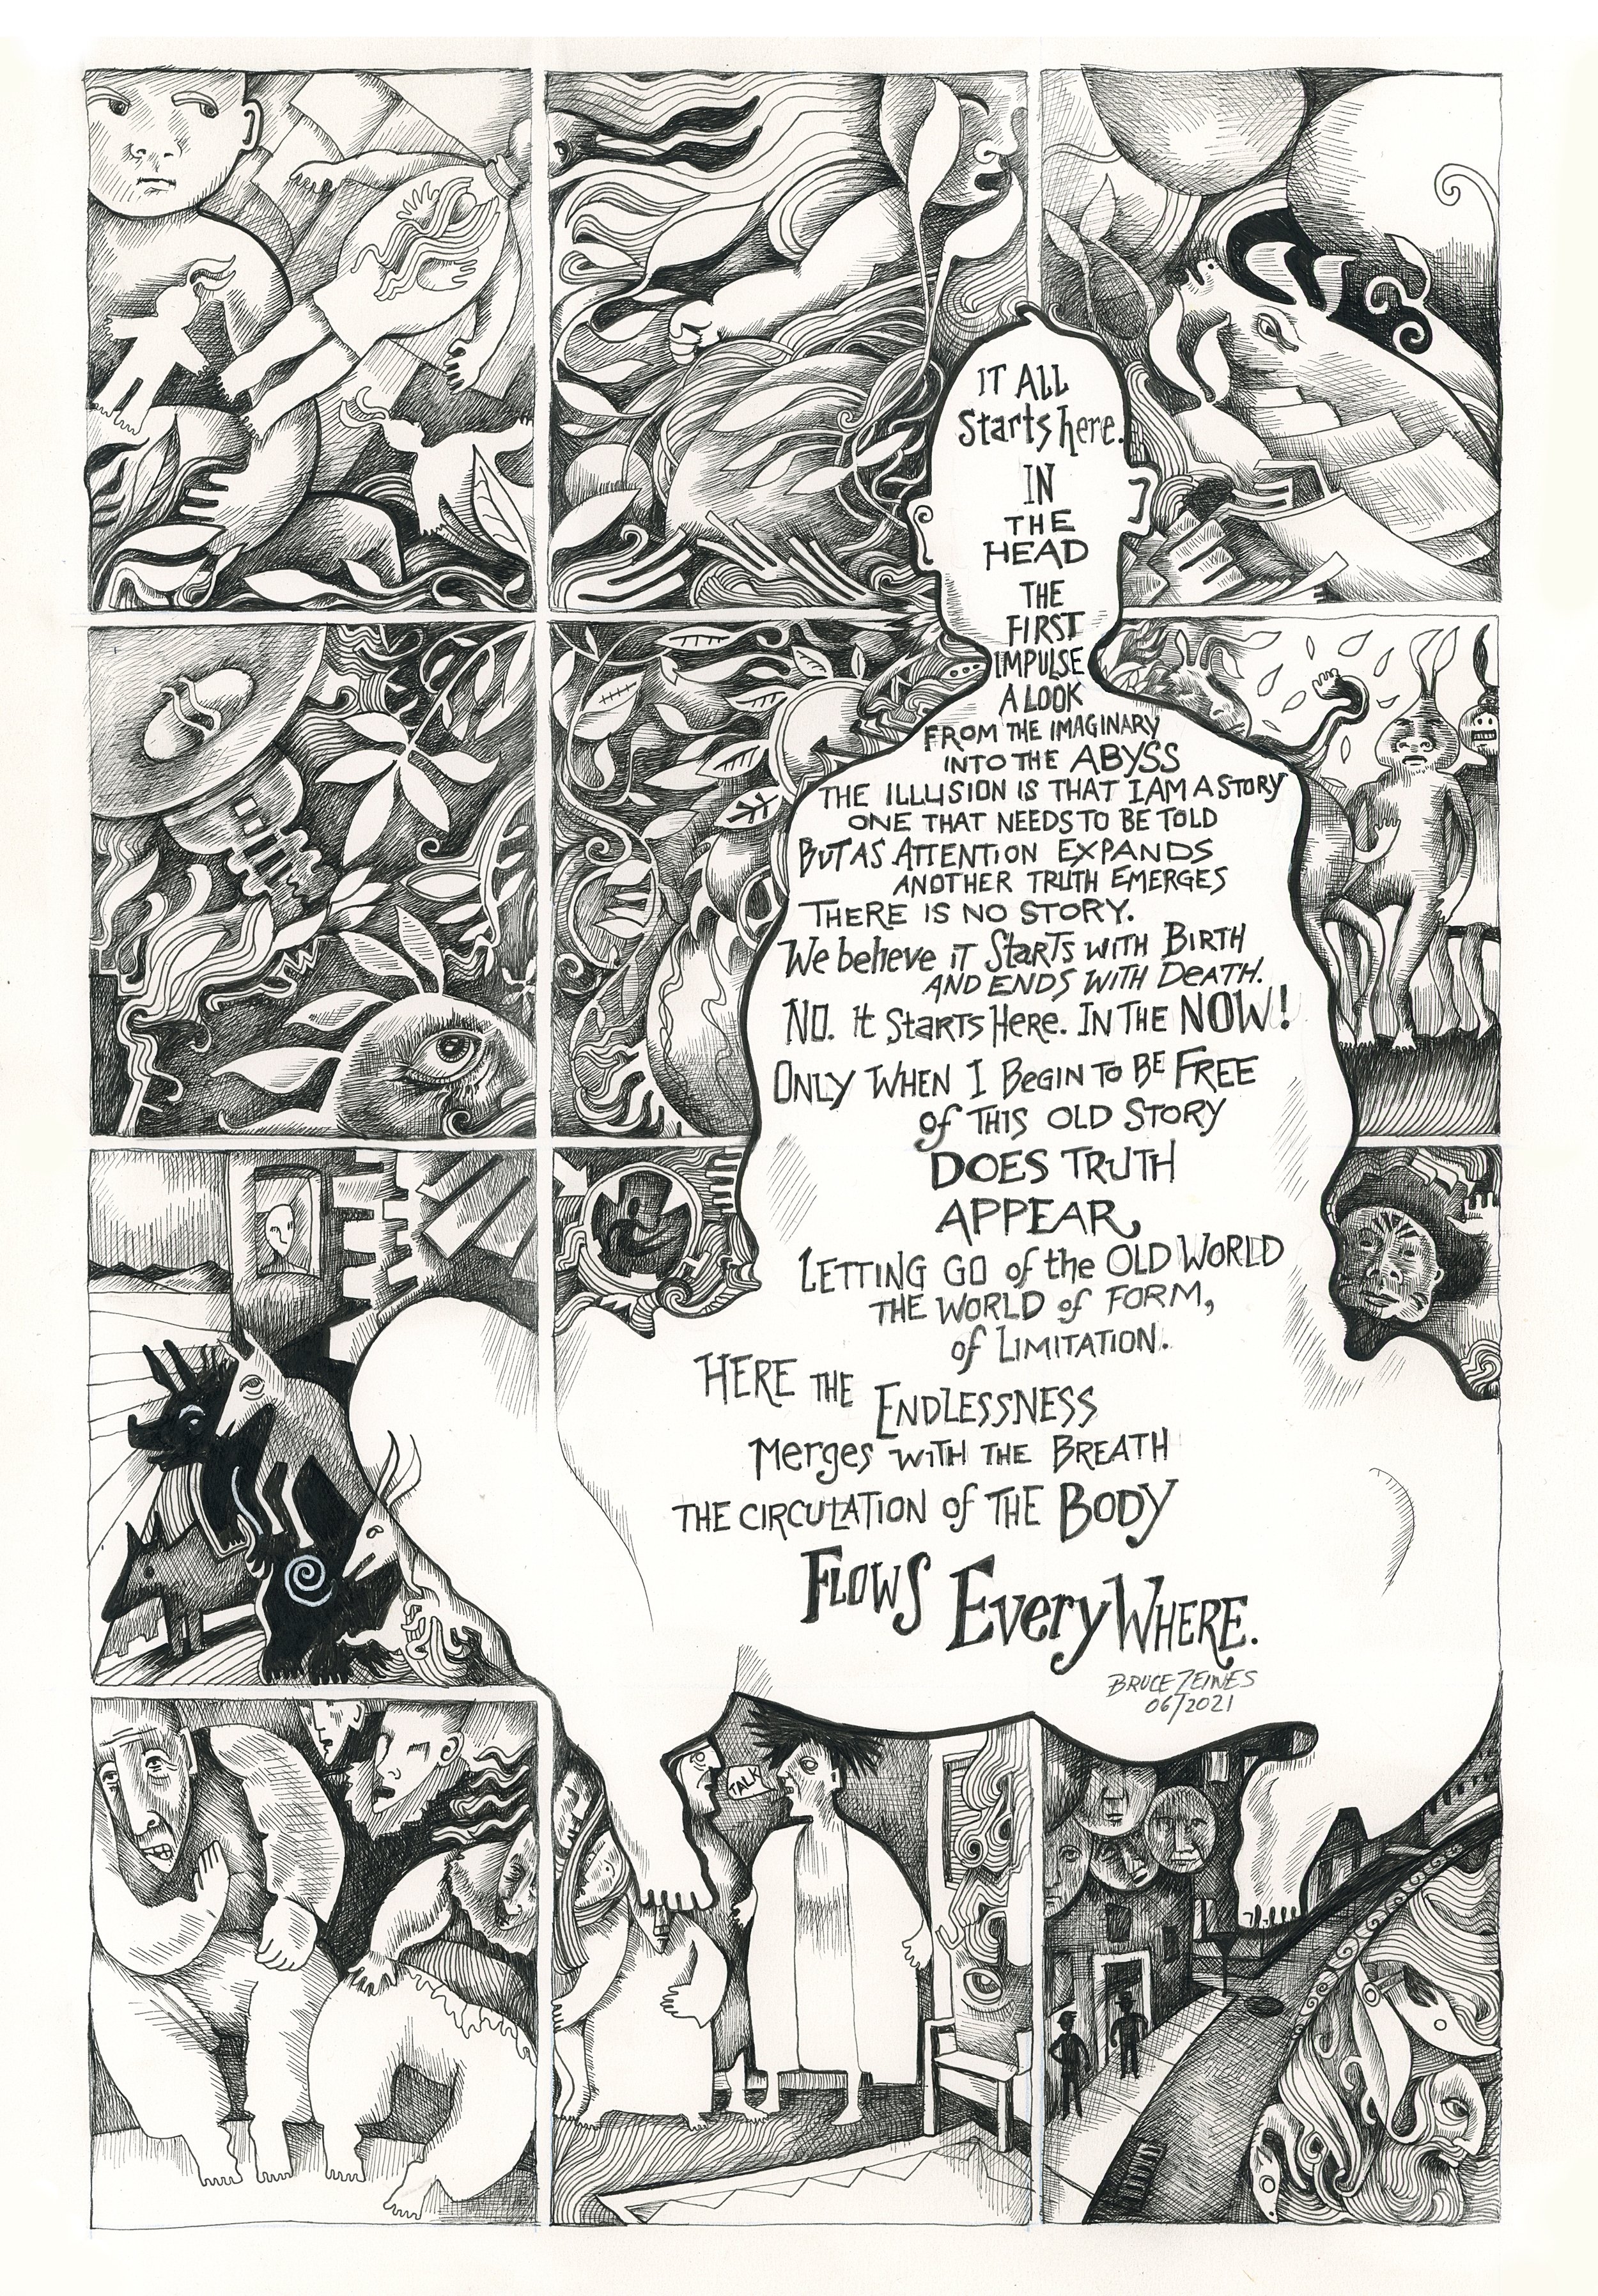 IT ALL
Starts here.
IN
THE
HEAD
THE
FIRST
IMPULSE
A LOOK
FROM THE IMAGINARY
INTO THE ABYSS
THE ILLUSION IS THAT I AM A STORY
ONE THAT NEEDS TO BE TOLD
BUT AS ATTENTION EXPANDS
ANOTHER TRUTH EMERGES
THERE IS NO STORY.
We believe iT STarTs WITH BIRTH
AND ENDS WITH DEATH.
NO. It STarTs Here. IN THE NOW!
ONLY WHEN I BeGIN TO BE FREE
of THIS OLD STORY
DOES TRUTH
APPEAR,
LETTING GO of the OLD WORLD
THE WORLD of FORM,
of LIMITATION.
HERE THE ENDLESSNESS
Merges WITH THE BREATH
THE CIRCULATION of THE BODY
FLOWS EveryWHERE.
BRUCE ZEINES
06/2021
TALK